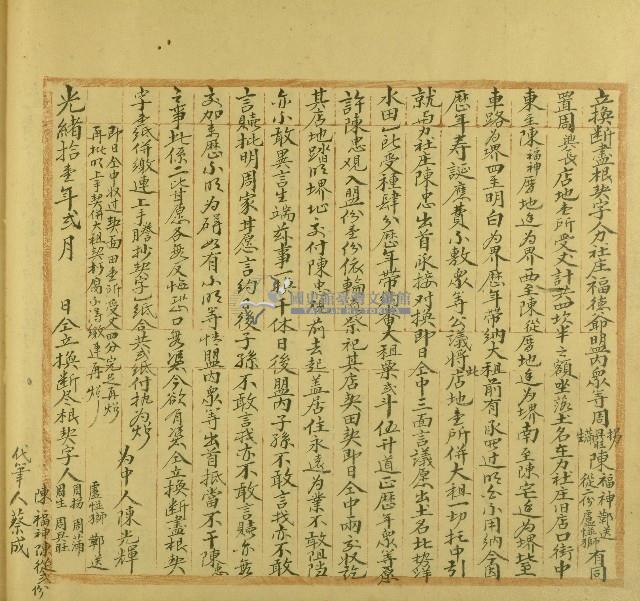 立換断盡根契字人力社庄福德爺盟內眾等周揚莊滿陳福神從二份鄭送盧恒獅有同
置周興長店地壹所受丈計四坎半之額坐落土名在力社庄旧店口街中
東至陳福神厝地边為界西至陳從厝地边為界南至陳芒边為界北至
車路為界四至明白為界歷年帶納大租前有
歷年壽誕應費不敷眾等公議將此店地壹所併大租一切托中引
就向力社庄陳忠出首承接对換即日仝中三面言議原出土名北勢洋
水田一坵受種肆分歷年帶納大租粟弍斗伍升道正歷年眾等愿
許陳忠覌入盟份壹份依輪祭祀其店契田契即日仝中兩交收訖
其店地踏明堺址交付陳忠觀前去起盖居住永遠為業不敢阻擋
亦不敢異言生端茲事一換千休日後盟內子孫不敢言找亦不敢
言贖批明周家甘愿言約日後子孫不敢言找亦不敢言贖亦無
交加來歷不明為碍如有不明等情盟內眾等出首抵當不干陳忠
之事此係二比甘愿各無反悔恐口無憑今欲有憑仝立換斷盡根契
字壹紙併繳連上手謄抄契字一紙合共弍紙付执為炤
即日仝中收过契面田壹所受丈四分完足再炤
再批明上手契併大租契抄寫不得繳連再炤
為中人陳光輝
光緒拾壹年弍月 日仝立換断尽根契字人
盧恒獅 鄭送
周揚 周滿
周生 周興莊
陳福神 陳從弍份
代筆人蔡成
國史館臺灣文獻館